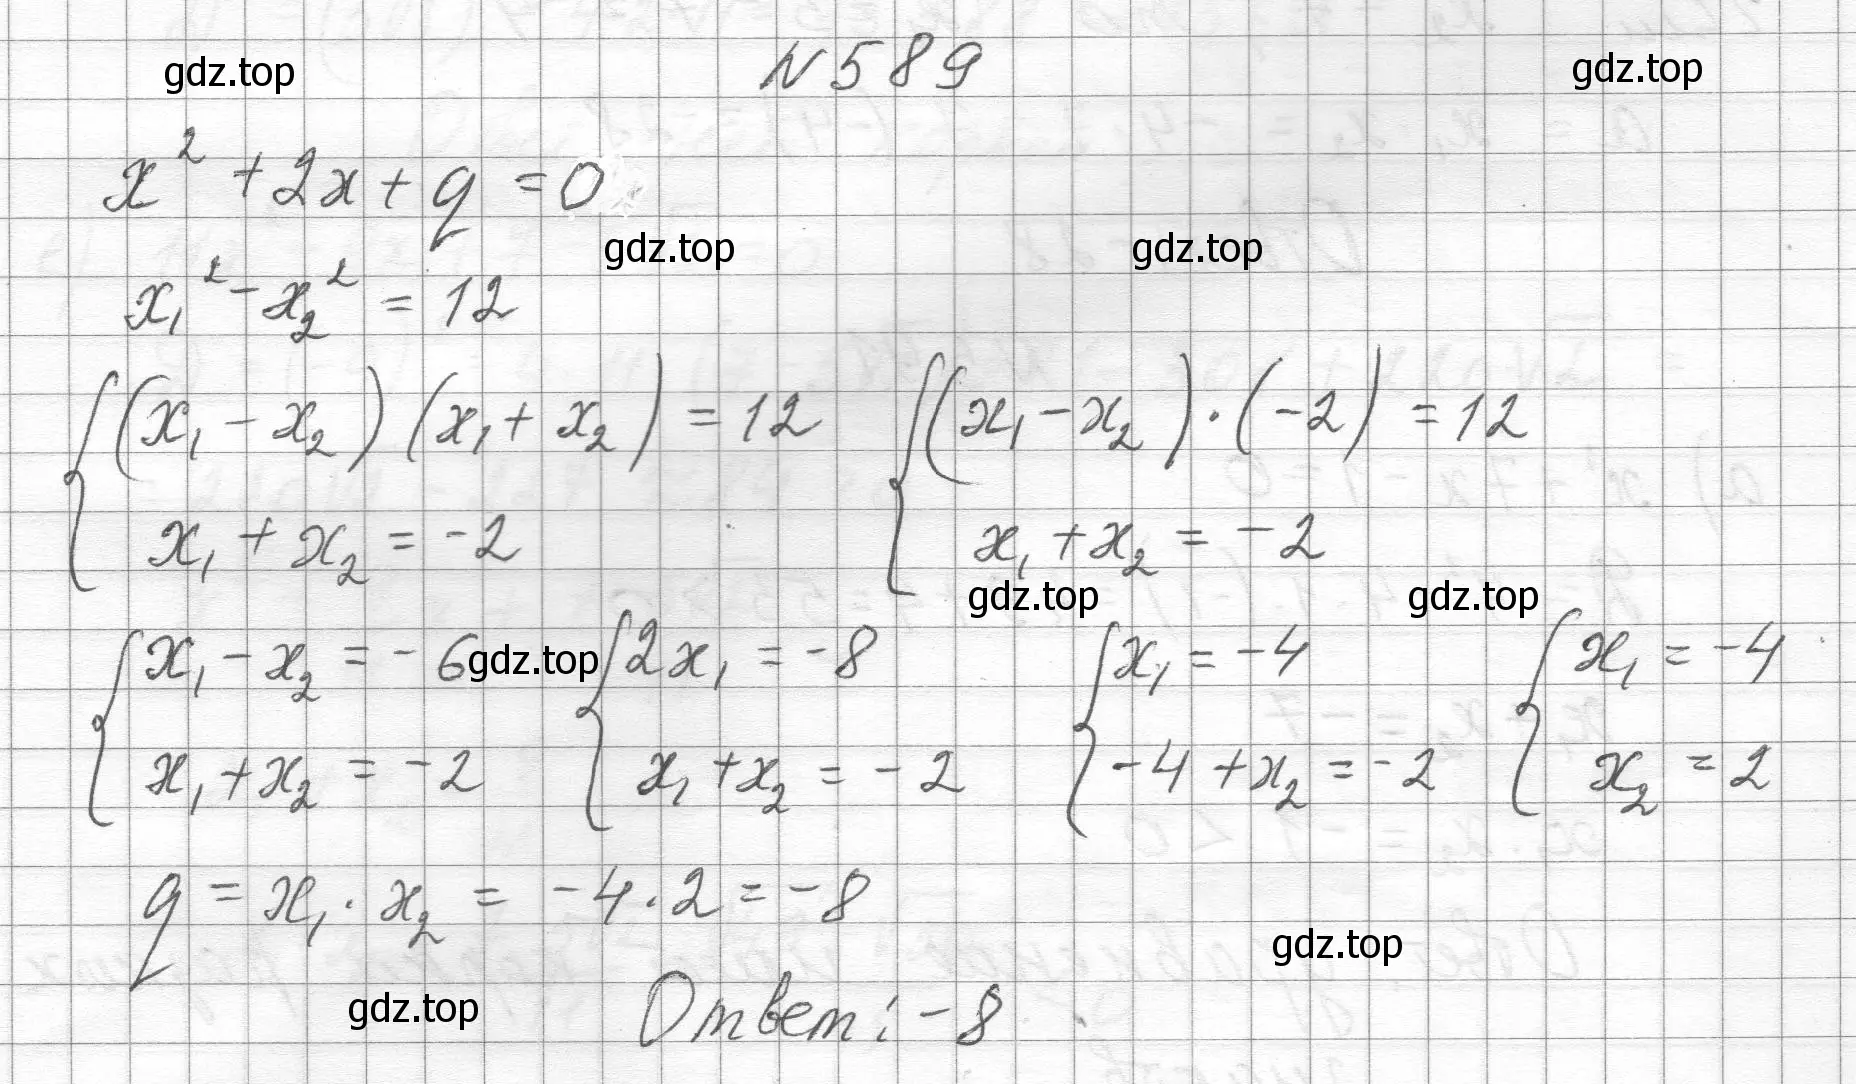 gdz.top N 589 gdz.top
x² + 2x + q = 0
gdz.top gdz.top
x₁² - x₂² = 12
{ (x₁ - x₂)(x₁ + x₂) = 12 { (x₁ - x₂) · (-2) = 12
x₁ + x₂ = -2 x₁ + x₂ = -2
gdz.top gdz.top
{ x₁ - x₂ = -6 gdz.top { 2x₁ = -8 { x₁ = -4 { x₁ = -4
x₁ + x₂ = -2 x₁ + x₂ = -2 -4 + x₂ = -2 x₂ = 2
q = x₁ · x₂ = -4 · 2 = -8
gdz.top
gdz.top Ответ: -8